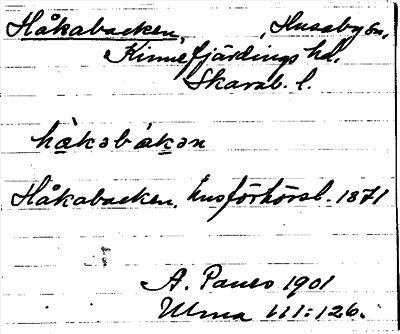 Håkabacken, Husaby sn,
Kinnefjärdings hd,
Skarab. l.
hàkəbákən
Håkabacken. husförhörsl. 1871
A. Paues 1901
111:126.